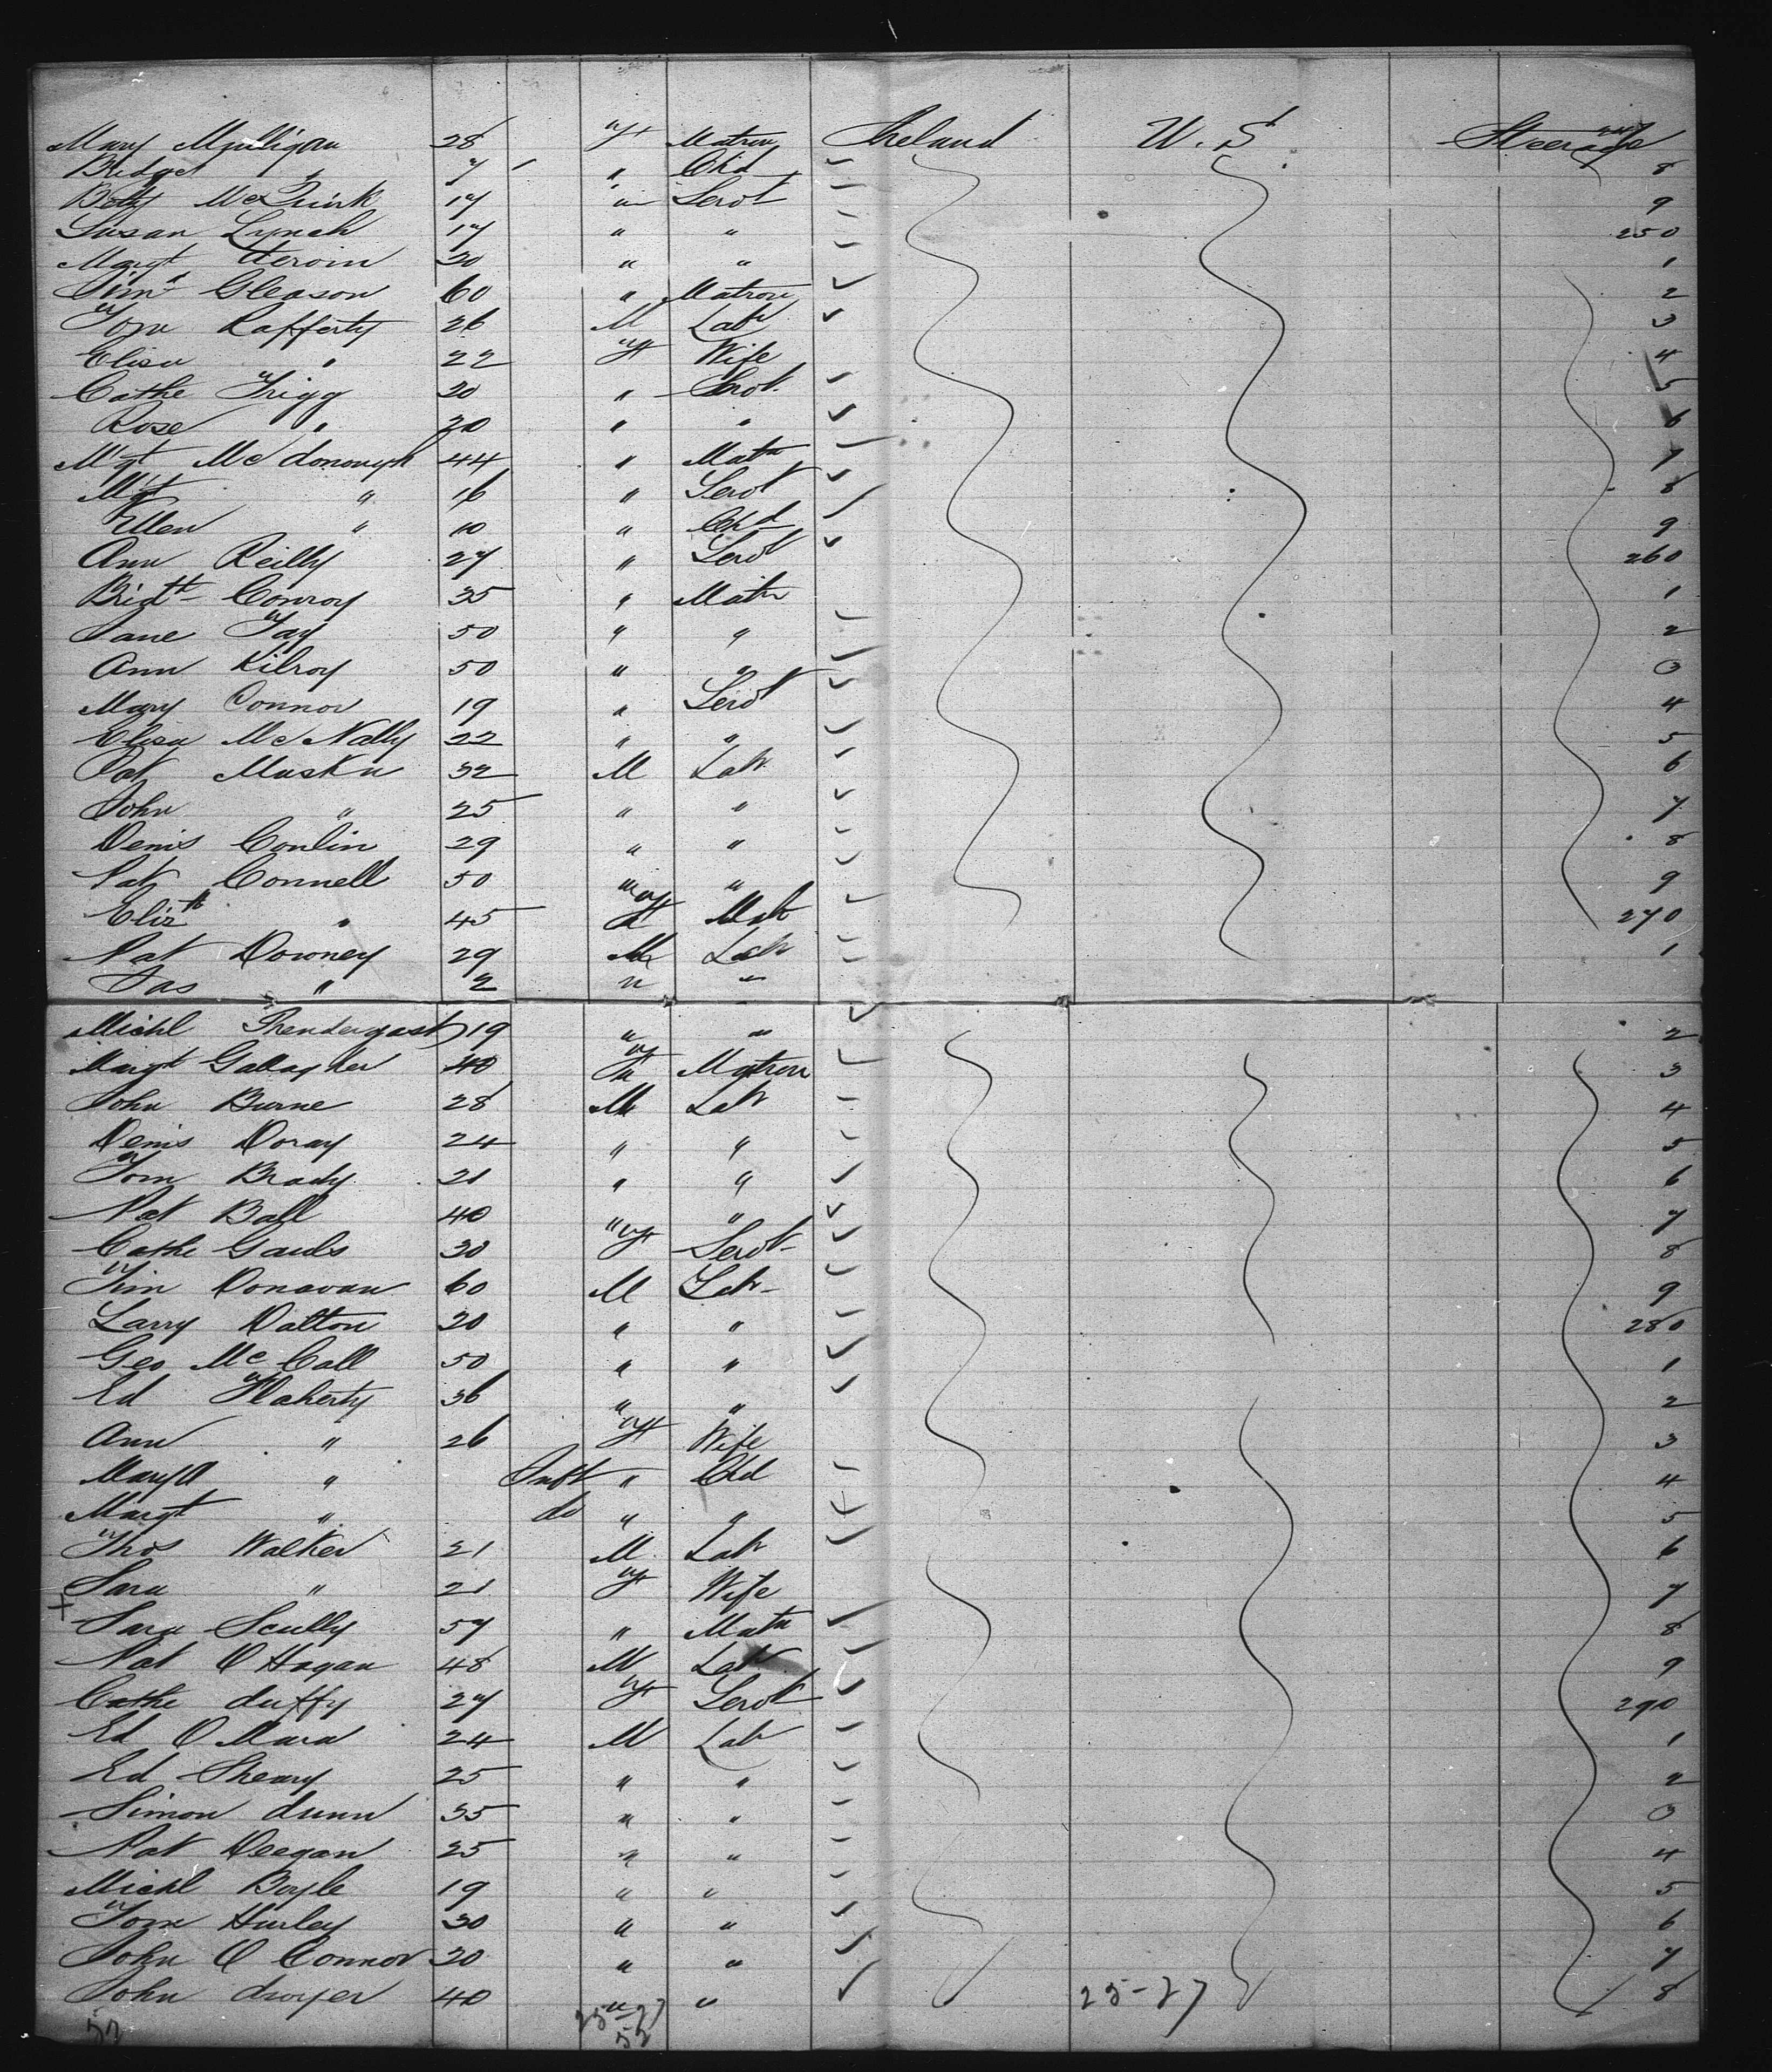 Mary Mulligan 28 f Matron Ireland U.S. Steerage 247
Bridget " 7 " Chd 8
Betty McQuirk 17 " Servt 9
Susan Lynch 17 " " 250
Margt 20 " " 1
Gleason 60 " Matron 2
Tom Rafferty 26 M Labr 3
Eliza " 22 f Wife 4
Cathe Frigg 20 " Servt 5
Rose " 20 " " 6
Mgt McDonough 44 " Matn 7
Mgt " 16 " Servt 8
Ellen " 10 " Chd 9
Ann Reilly 27 " Servt 260
Bridtt Conroy 35 " Matn 1
Jane Fay 50 " " 2
Ann Kilroy 50 " " 3
Mary Connor 19 " Servt 4
Eliza McNally 22 " " 5
Pat 32 M Labr 6
John " 25 " " 7
Denis Conlin 29 " " 8
Pat Connell 50 " " 9
Elizth " 45 f Matn 270
Pat Downey 29 M Labr 1
Jas " 2 " "
Michl Prendergast 19 " " 2
Margt Gallagher 40 f Matron 3
John Burne 28 M Labr 4
Denis Doray 24 " " 5
Tom Brady 21 " " 6
Pat Ball 40 " " 7
Cathe 30 f Servt 8
Tim Donovan 60 M Labr 9
Larry Dalton 20 " " 280
Geo McCall 50 " " 1
Ed Flaherty 36 " " 2
Ann " 26 f Wife 3
Mary A " Inft " Chd 4
Margt " do " " 5
Thos Walker 21 M Labr 6
Sara " 21 f Wife 7
+ Sara Scully 57 " Matn 8
Pat O Hagan 48 M Labr 9
Cathe duffy 27 f Servt 290
Ed O Mara 24 M Labr 1
Ed Sheary 25 " " 2
Simon dunn 35 " " 3
Pat Deegan 25 " " 4
Michl Boyle 19 " " 5
Tom Hurley 30 " " 6
John O Connor 20 " " 7
John dwyer 40 " " 8
25-27 25-27
52 52